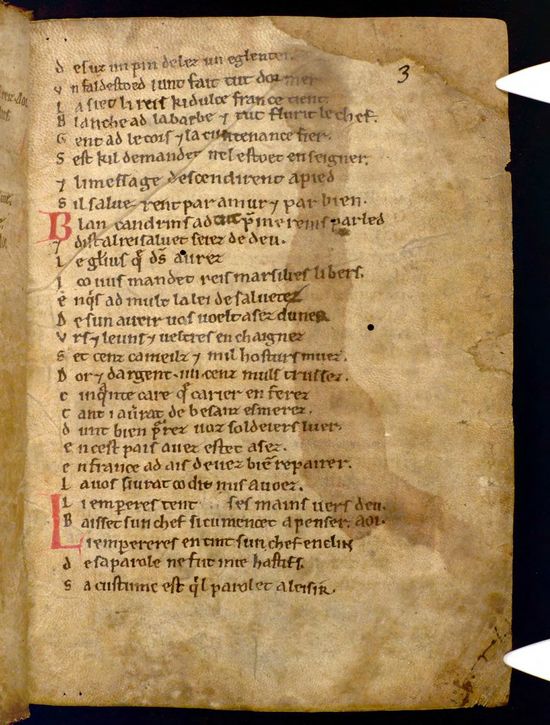 3
d esuz un pin delez un eglenter.
v n faldestoed i unt fait tut dor mer
L a siet li reis ki dulce france tient.
B lanche ad la barbe ⁊ tut flurit le chef.
G ent ad le cors ⁊ la cuntenance fier.
S est kil demandet nel estoet enseigner.
⁊ li message descendirent a pied
s il saluerent par amur ⁊ par bien.
B lancandrins ad tut p̃mereins parled
⁊ dist al rei saluet seiez de deu.
L e gl̃ius q̃ dẽ aurez
i ço vus mandet reis marsilies li bers.
e nq̃s ad mult la lei de salvetez
D e sun aveir vos voelt asez duner
V rs ⁊ leuns ⁊ veltres enchaignez
S et cenz cameilz ⁊ mil hosturs muez.
D or ⁊ dargent .iiii. cenz muls trussez.
c inq̃nte care q̃ carier en ferez
T ant i aṽrat de besanz esmerez.
d unt bien p̃rez voz soldeiers luer.
e n cest pais avez estet asez.
e n france ad ais devez bie᷃ repairer.
L a vos siurat ço dit mis avoez.
L i empereres tent ses mains vers deu.
B aisset sun chef si cumencet a penser. aoi.
L i empereres en tint sun chef enclin
d e sa parole ne fut mie hastifs.
s a custume est q̃l parolet a leisir.